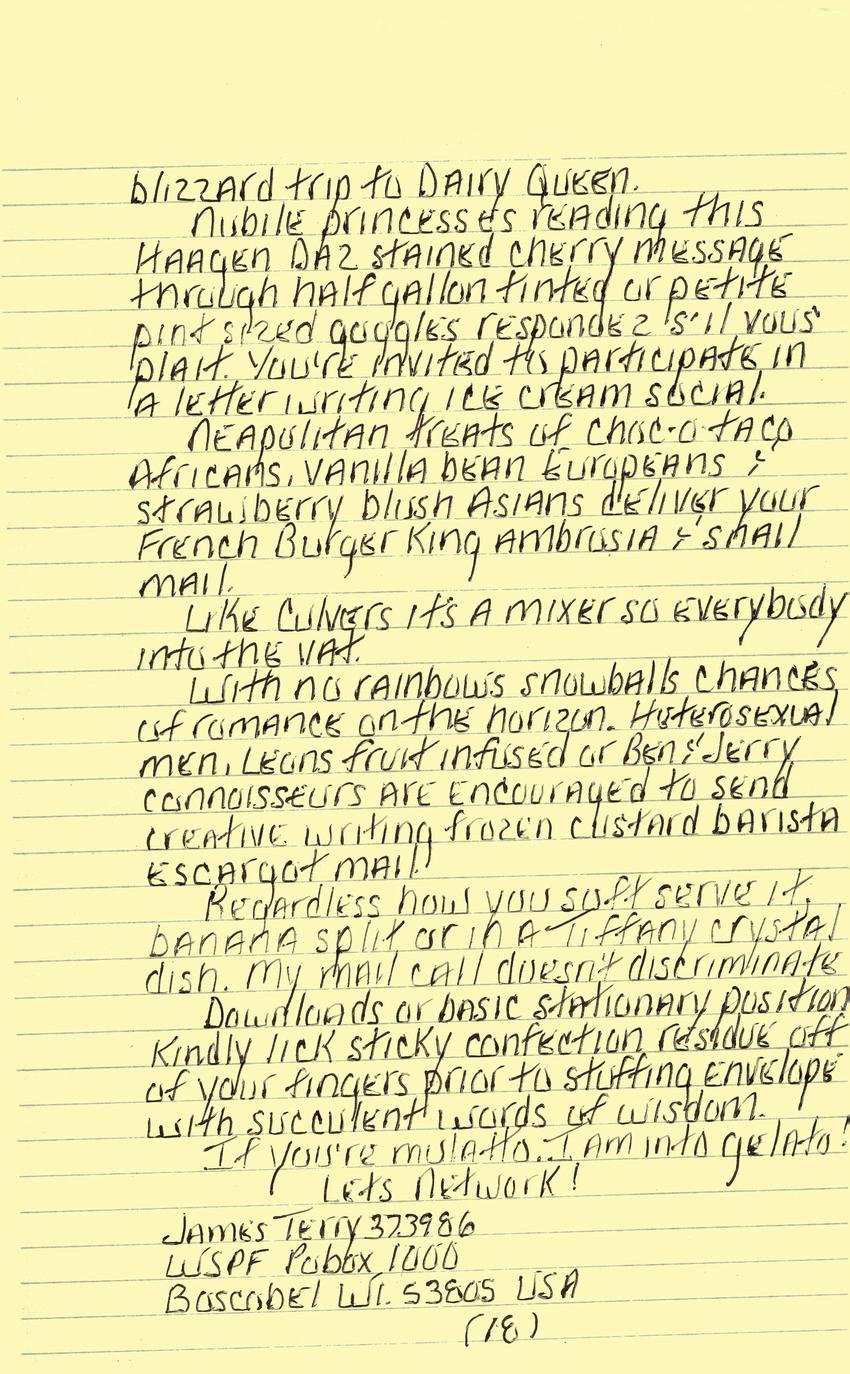 blizzard trip to Dairy Queen.
Nubile princesses reading this
Haagen Daz stained cherry message
through half gallon tinted or petite
pint sized goggles respondez s'il vous
plait. You're invited to participate in
a letter writing ice cream social.
Neapolitan treats of choc-o-taco
Africans, vanilla bean Europeans &
strawberry blush Asians deliver your
French Burger King ambrosia & snail
mail.
Like Culvers it's a mixer so everybody
into the vat.
With no rainbows snowballs chances
of romance on the horizon. Heterosexual
men, Leons fruit infused or Ben & Jerry
connoisseurs are encouraged to send
creative writing frozen custard barista
escargot mail!
Regardless how you soft serve it,
banana split or in a Tiffany crystal
dish. My mail call doesn't discriminate
Downloads or basic stationary position
Kindly lick sticky confection residue off
of your fingers prior to stuffing envelope
with succulent words of wisdom.
If you're mulatto.. I am into gelato!
Lets Network!
James Terry 373986
WSPF Pobox 1000
Boscobel WI. 53805 USA
(18)